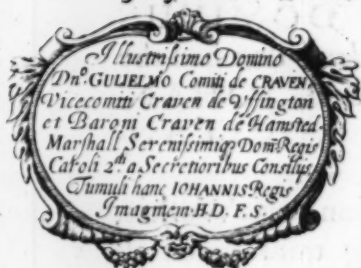 Illustrissimo Domino
Dn.º GULIELMO Comiti de CRAVEN,
Vicecomiti Craven de Vffington
et Baroni Craven de Hamsted-
Marshall Serenissimiq; Dom: Regis
Caroli 2.di a Secretioribus Consilijs
Tumuli hanc IOHANNIS Regis
Imaginem H.D.F.S.